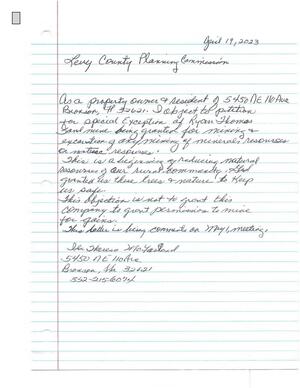 April 19, 2023
Levy County Planning Commission
As a property owner & resident of 5450 NE 110 Ave
Bronson, Fl 32621. I object to petition
for Special Exception of Ryan Thomas
Sand mine being granted for mining &
excavation of any mining of mineral resources
or natural resource.
This is a beginning of reducing natural
resources of our rural community. God
granted us these trees & nature to keep
us safe.
This objection is not to grant this
Company to grant permission to mine
for gains.
This letter is being comments on May 1, meeting.
Theresa
5450 NE 110 Ave
Bronson, Fla 32621
352-215-6074